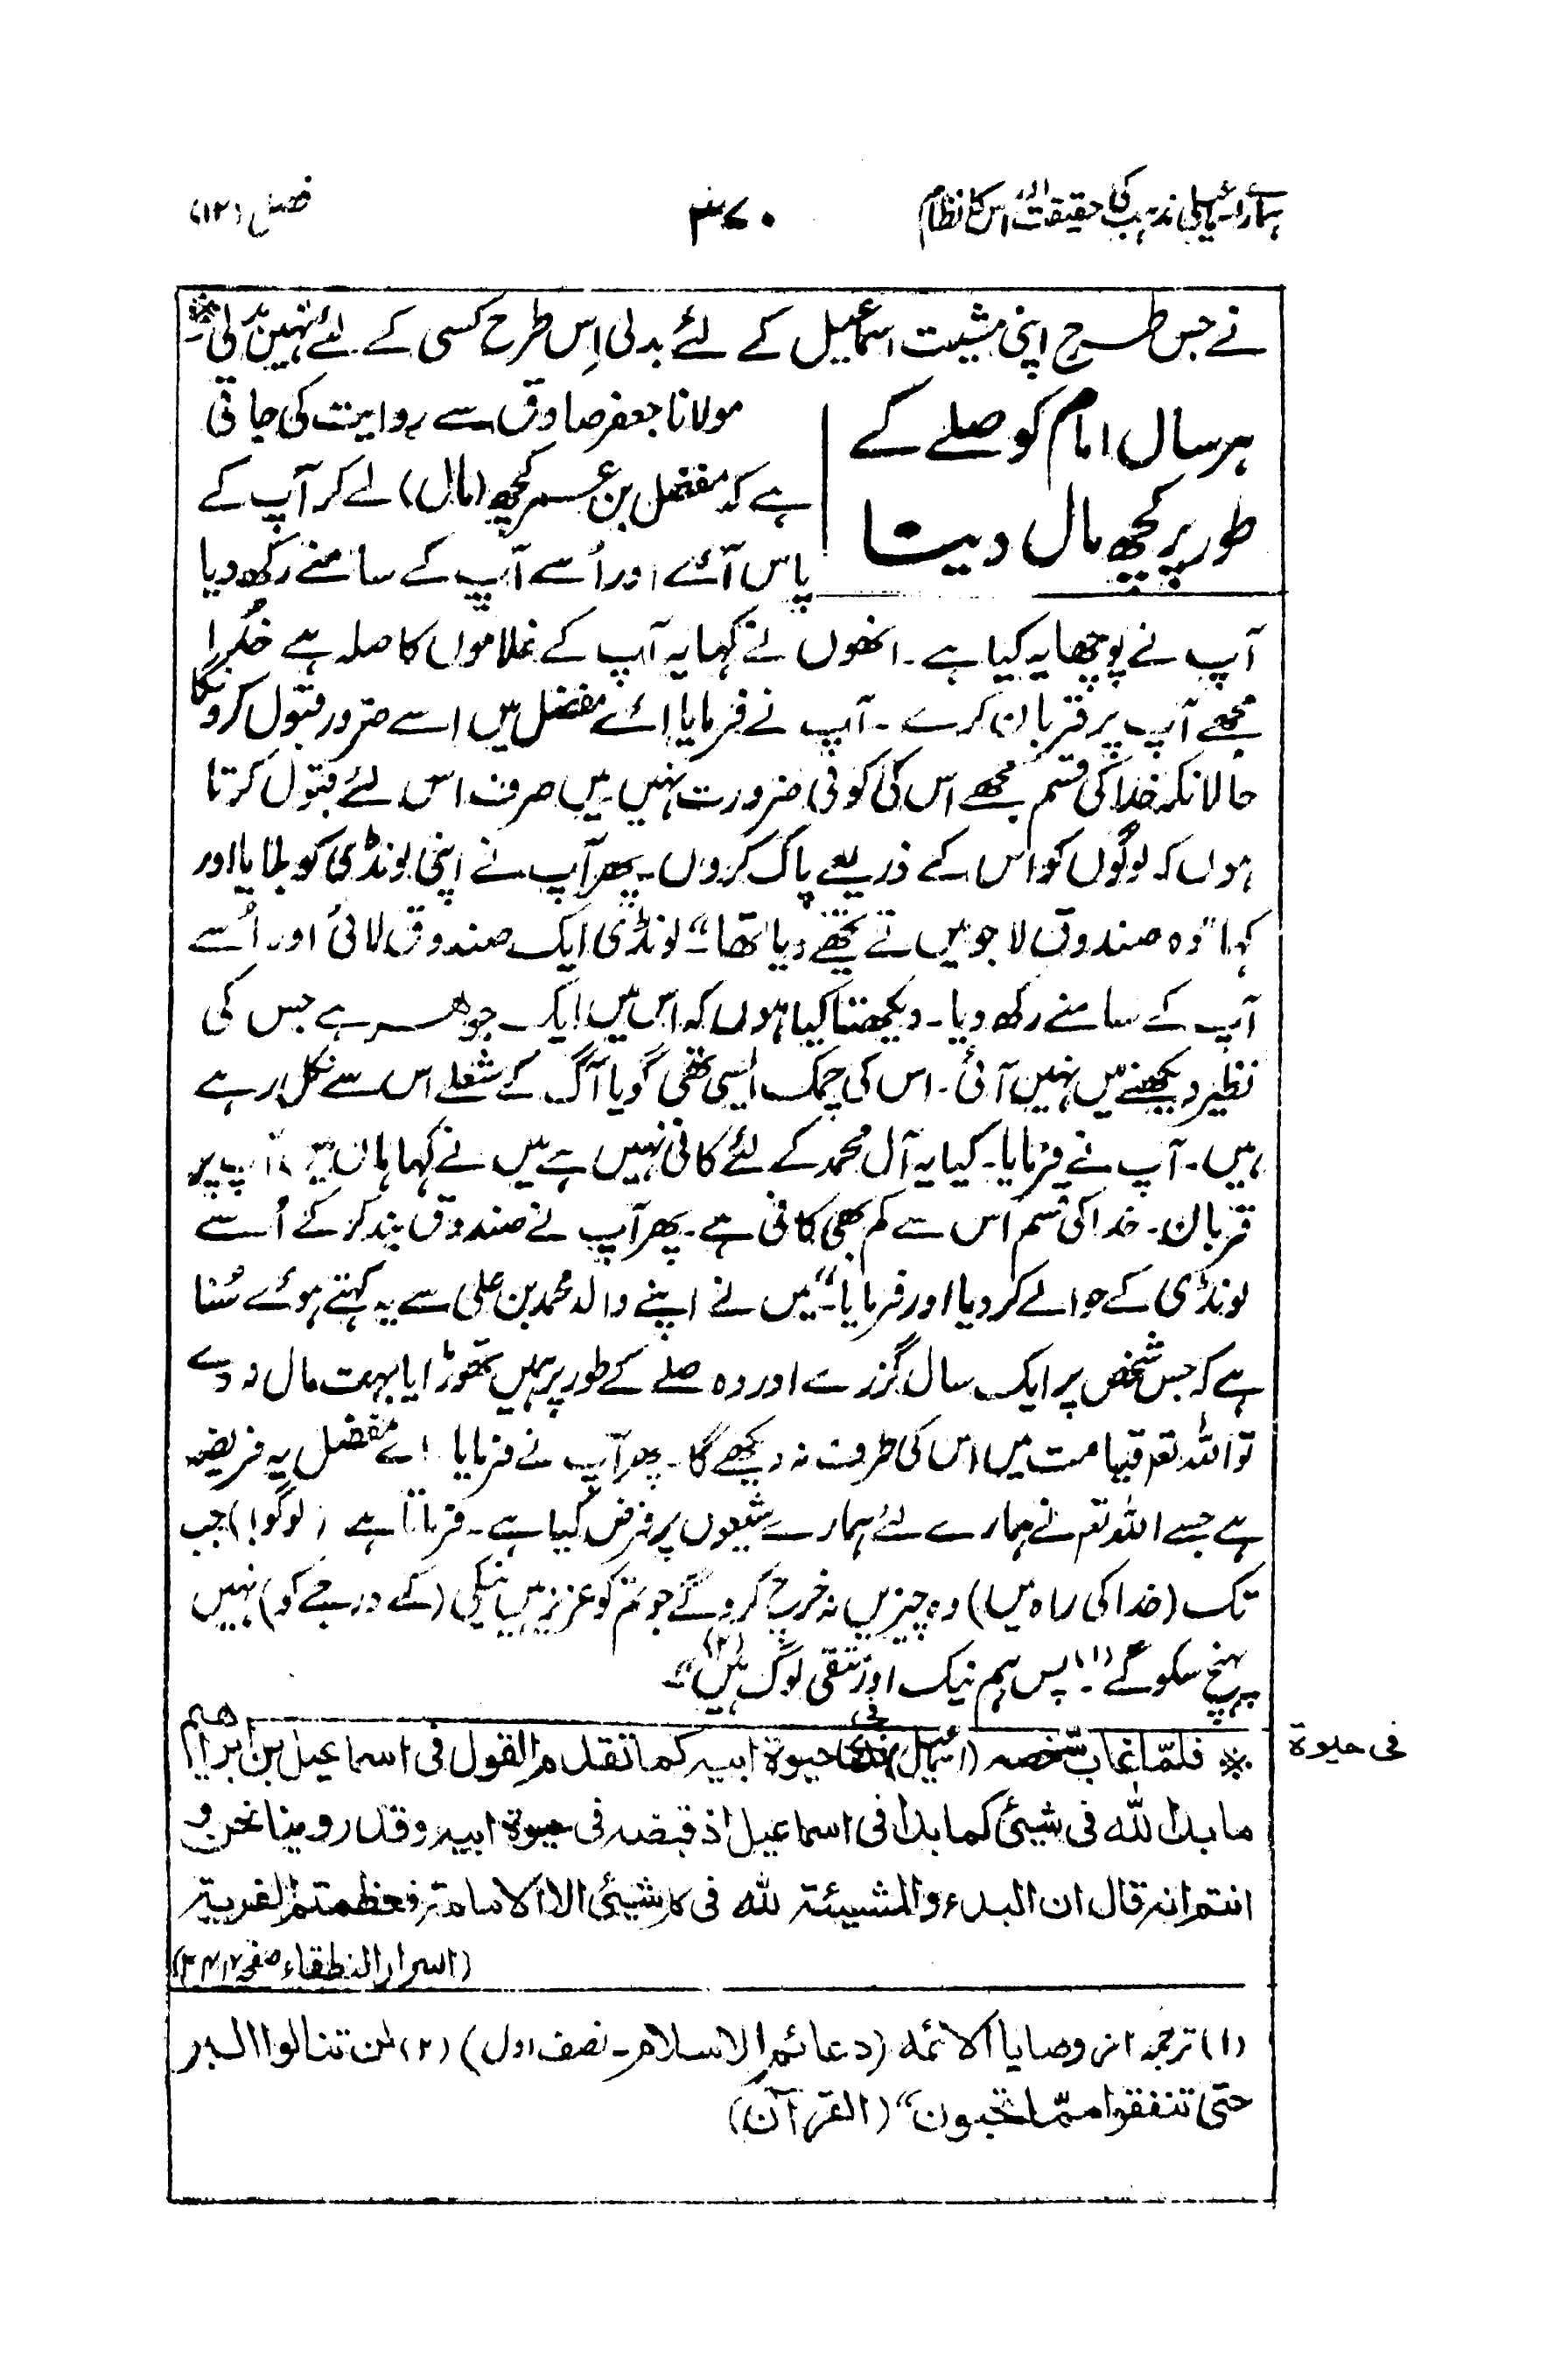 ہمارے اسماعیلی مذہب کی حقیقت اور اس کا نظام
۳۷۰
فصل (۱۲)
نے جس طرح اپنی مشیت اسماعیل کے لئے بدلی اِس طرح کسی کے لئے نہیں بدلی※
ہر سال امام کو صلے کے
طور پر کچھ مال دینا
مولانا جعفر صادق سے روایت کی جاتی
ہے کہ مفضل بن عمر کچھ (مال) لے کر آپ کے
پاس آئے اور اُسے آپ کے سامنے رکھ دیا
آپ نے پوچھا یہ کیا ہے۔ انھوں نے کہا یہ آپ کے غلاموں کا صلہ ہے خدا
مجھے آپ پر قربان کرے۔ آپ نے فرمایا اے مفضل میں اسے ضرور قبول کرونگا
حالانکہ خدا کی قسم مجھے اس کی کوئی ضرورت نہیں۔ میں صرف اس لئے قبول کرتا
ہوں کہ لوگوں کو اس کے ذریعے پاک کروں۔ پھر آپ نے اپنی لونڈی کو بلایا اور
کہا "وہ صندوق لا جو میں نے تجھے دیا تھا"۔ لونڈی ایک صندوق لائی اور اُسے
آپ کے سامنے رکھ دیا۔ دیکھتا کیا ہوں کہ اس میں ایک جوہر ہے جس کی
نظیر دیکھنے میں نہیں آئی۔ اس کی چمک ایسی تھی گویا آگ کے شعلے اس سے نکل رہے
ہیں۔ آپ نے فرمایا۔ کیا یہ آل محمد کے لئے کافی نہیں ہے میں نے کہا ہاں میں آپ پر
قربان۔ خدا کی قسم اس سے کم بھی کافی ہے۔ پھر آپ نے صندوق بند کر کے اُسے
لونڈی کے حوالے کر دیا اور فرمایا۔ "میں نے اپنے والد محمد بن علی سے یہ کہتے ہوئے سُنا
ہے کہ جس شخص پر ایک سال گزرے اور وہ صلے کے طور پر ہمیں تھوڑا یا بہت مال نہ دے
تو اللہ تعہ قیامت میں اس کی طرف نہ دیکھے گا۔ پھر آپ نے فرمایا اے مفضل یہ فریضہ
ہے جسے اللہ تعہ نے ہمارے لئے ہمارے شیعوں پر فرض کیا ہے۔ فرماتا ہے (لوگو!) جب
تک (خدا کی راہ میں) وہ چیزیں نہ خرچ کرو گے جو تم کو عزیز ہیں نیکی (کے درجے کو) نہیں
پہنچ سکو گے"(۱) پس ہم نیک اور متقی لوگ ہیں"(۲)۔
※ فلمّا غاب شخصه (اسماعیل) فی حیوة ابیه کما تقدم القول فی اسماعیل بن ابراهیم
فی حیوة
ما بدا لله فی شیئ کما بدا فی اسماعیل اذ قبضه فی حیوة ابیه وقد روینا نحن و
انتم انه قال ان البدء والمشیئة لله فی کل شیئ الا الامامة فعظمتم الفریة
(اسرار النطقاء صفحہ
(۱) ترجمہ از وصایا الائمه (دعائم الاسلام۔ نصف اول) (۲) لن تنالوا البر
حتی تنفقوا ممّا تحبون" (القرآن)